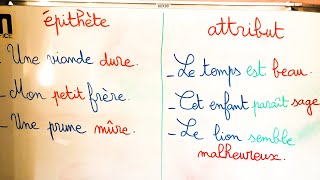 épithète
- Une viande dure.
- Mon petit frère.
- Une prune mûre.
attribut
- Le temps est beau.
- Cet enfant paraît sage
- Le lion semble
malheureux.